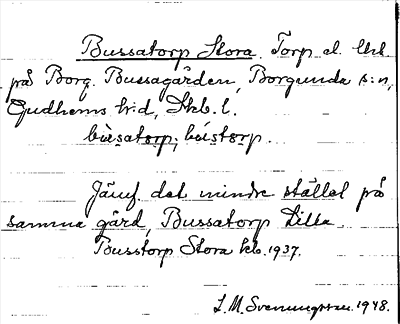 Bussatorp Stora. Torp el. lht
på Borg. Bussagården, Borgunda s:n,
Gudhems h:d, Skb. l.
bùsatorp; bùstorp.
Jämf. det mindre stället på
samma gård, Bussatorp Lilla.
Busstorp Stora kb. 1937.
L.M. Svenungsson. 1948.